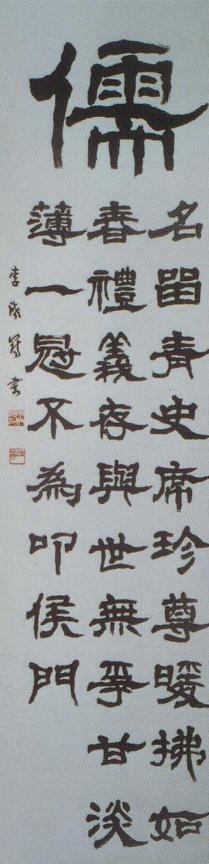 儒
名留青史席珍尊暖拂如
春禮義存與世無爭甘淡
薄一冠不為叩侯門
李
書